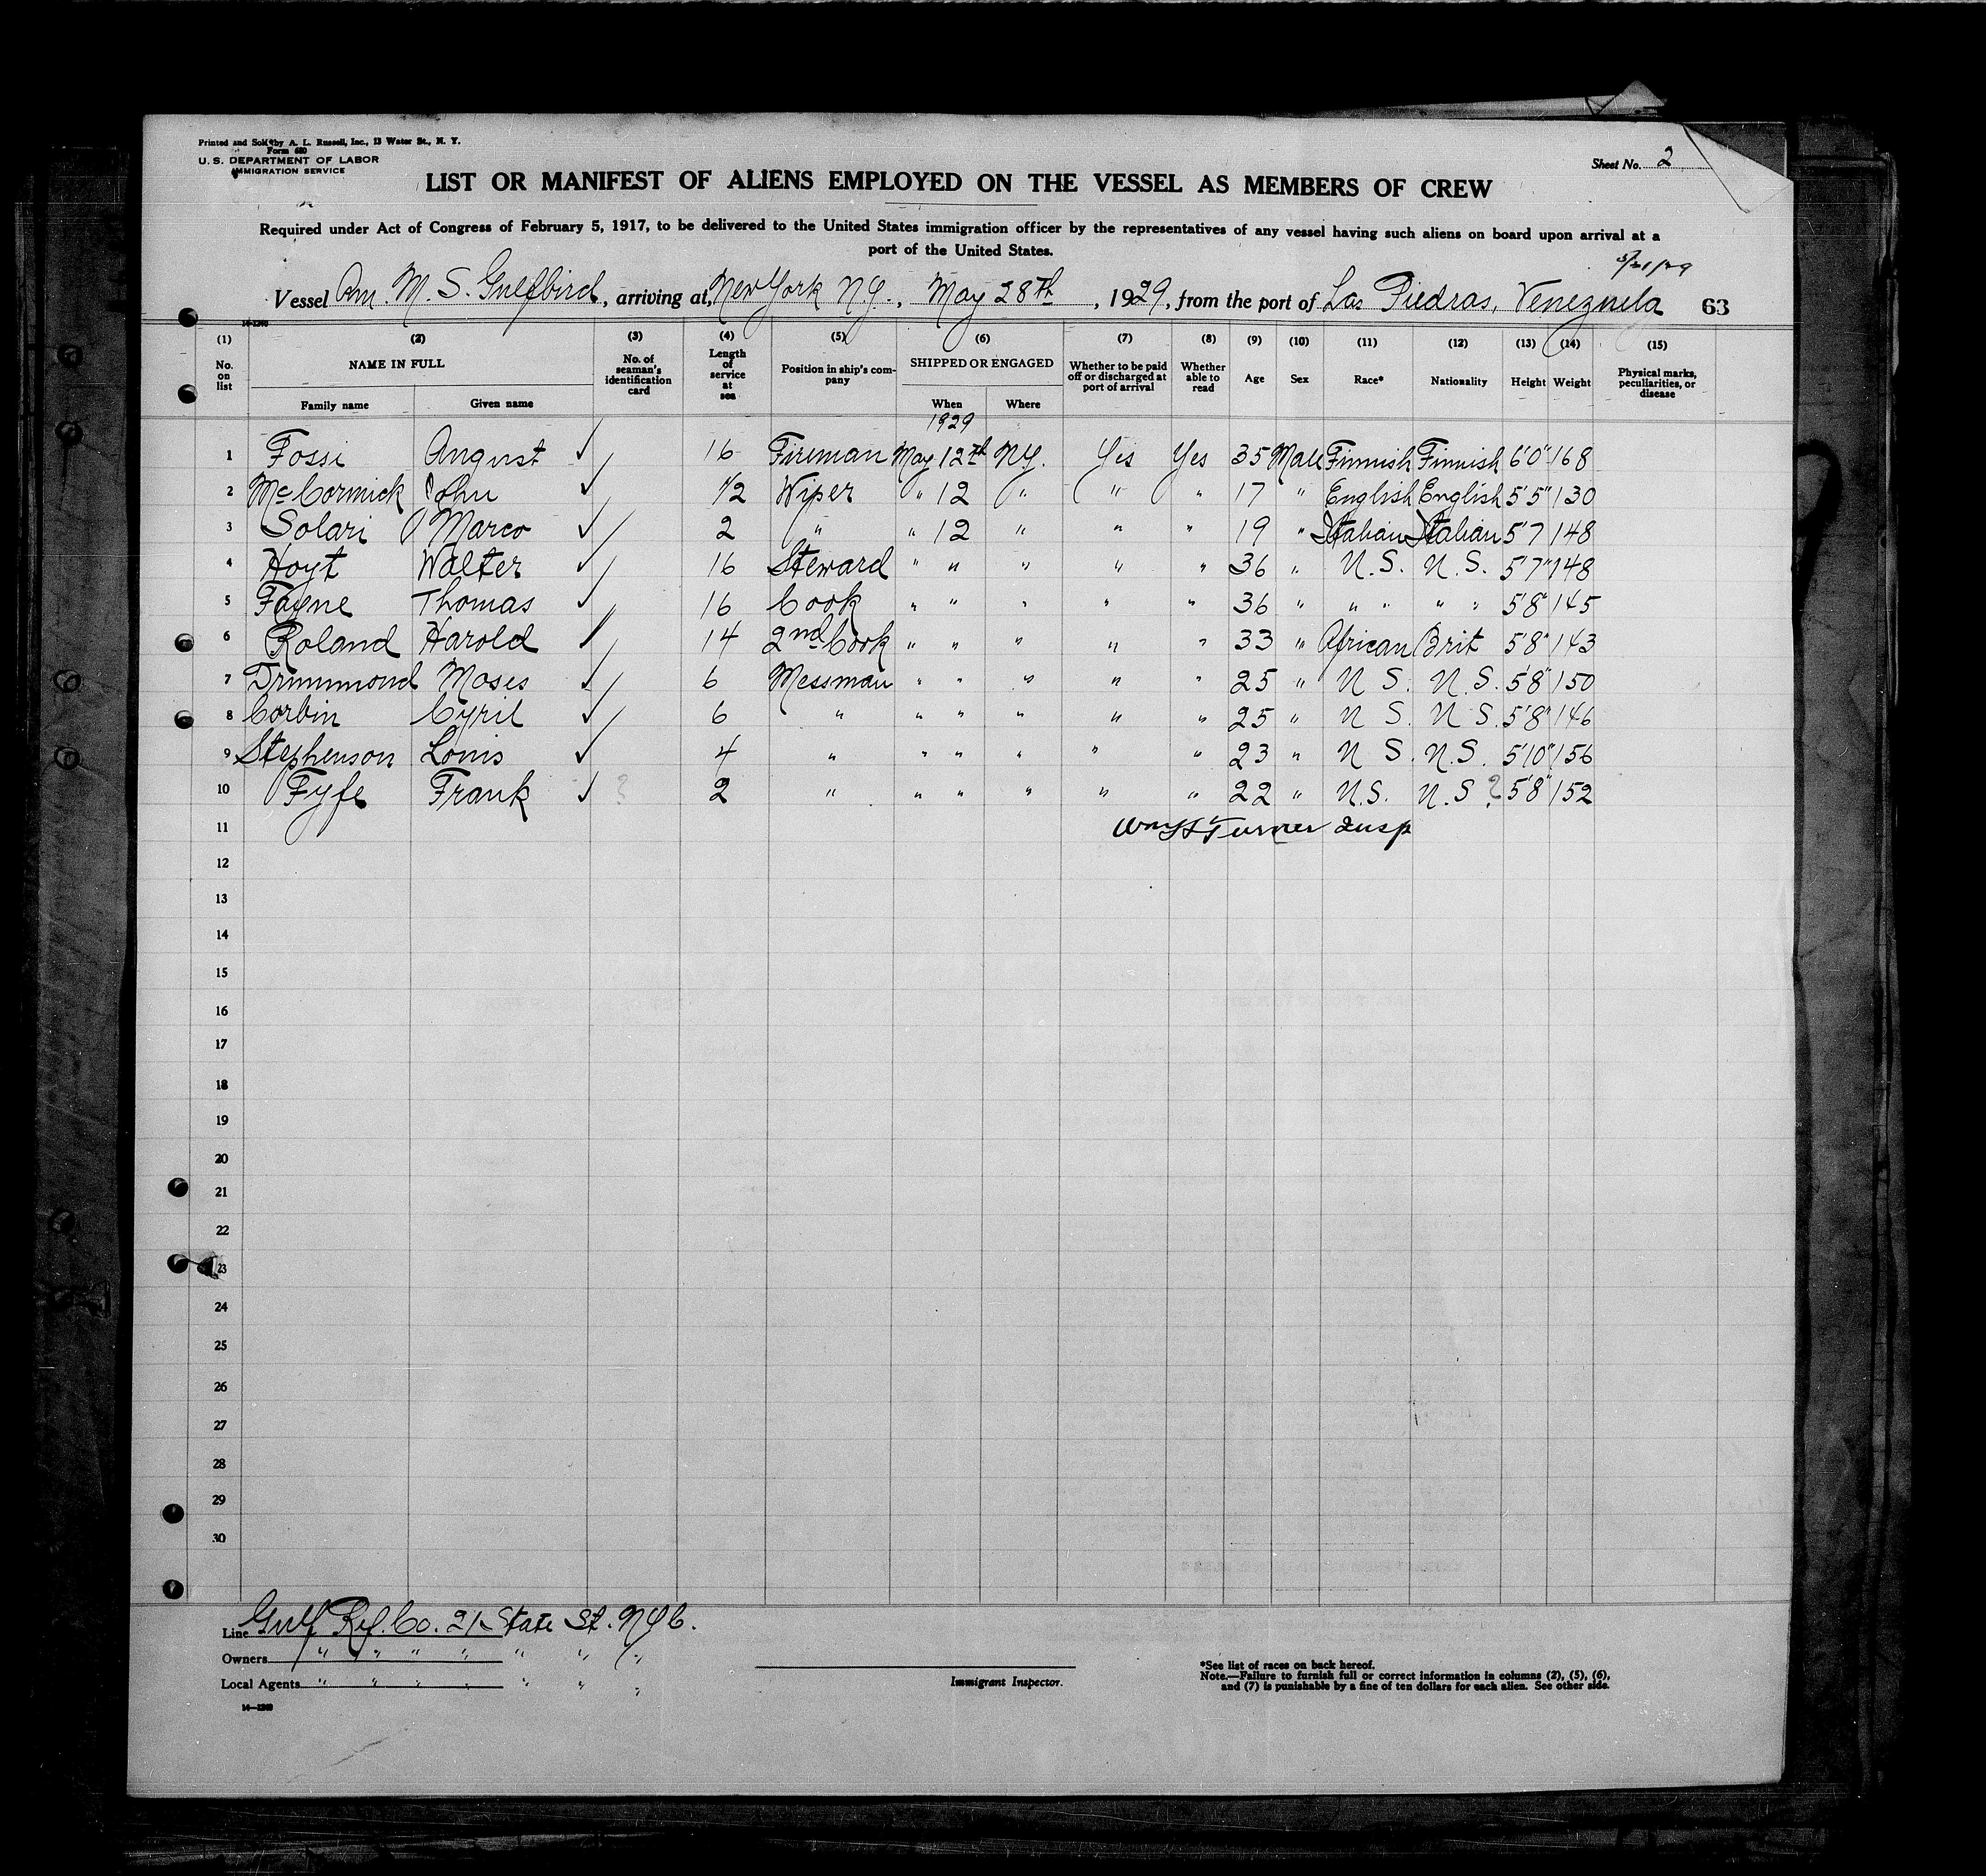 Printed and Sold by A. L. Russell, Inc., 13 Water St., N. Y.
Form 680
U. S. DEPARTMENT OF LABOR
IMMIGRATION SERVICE
Sheet No. 2
LIST OR MANIFEST OF ALIENS EMPLOYED ON THE VESSEL AS MEMBERS OF CREW
Required under Act of Congress of February 5, 1917, to be delivered to the United States immigration officer by the representatives of any vessel having such aliens on board upon arrival at a
port of the United States.
Vessel Am. M. S. Gulfbird, arriving at, New York N.Y., May 28th, 1929, from the port of Las Piedras, Venezuela 63
(1) (2) (3) (4) (5) (6) (7) (8) (9) (10) (11) (12) (13) (14) (15)
No. on list NAME IN FULL Family name Given name No. of seaman's identification card Length of service at sea Position in ship's company SHIPPED OR ENGAGED When Where Whether to be paid off or discharged at port of arrival Whether able to read Age Sex Race* Nationality Height Weight Physical marks, peculiarities, or disease
1929
1 Fossi August ✓ 16 Fireman May 12th N.Y. Yes Yes 35 Male Finnish Finnish 6'0" 168
2 McCormick John ✓ 1/2 Wiper " 12 " " " 17 " English English 5'5" 130
3 Solari Marco ✓ 2 " " 12 " " " 19 " Italian Italian 5'7 148
4 Hoyt Walter ✓ 16 Steward " " " " " 36 " U.S. U.S. 5'7" 148
5 Fayne Thomas ✓ 16 Cook " " " " " 36 " " " " " 5'8" 145
6 Roland Harold ✓ 14 2nd Cook " " " " " 33 " African Brit 5'8" 143
7 Drummond Moses ✓ 6 Messman " " " " " 25 " U S. U.S. 5'8" 150
8 Corbin Cyril ✓ 6 " " " " " " 25 " U S. U S. 5'8" 146
9 Stephenson Louis ✓ 4 " " " " " " 23 " U S. U.S. 5'10" 156
10 Fyfe Frank ✓ ? 2 " " " " " " 22 " U.S. U.S ? 5'8" 152
11 Turner Insp
12
13
14
15
16
17
18
19
20
21
22
23
24
25
26
27
28
29
30
Line Gulf Ref. Co. 21 State St. N.Y.C.
Owners " " " " " " "
Local Agents " " " " " " "
Immigrant Inspector.
*See list of races on back hereof.
Note.—Failure to furnish full or correct information in columns (2), (5), (6),
and (7) is punishable by a fine of ten dollars for each alien. See other side.
14—1240